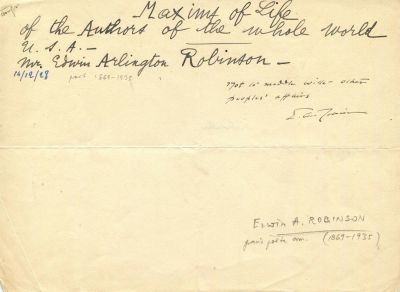 Maxims of Life
of the Authors of the whole world
U. S. A. —
Mr Edwin Arlington Robinson —
16/12/28
poet 1869-1935
Not to meddle with other
peoples' affairs
Edwin A. ROBINSON
(1869-1935)